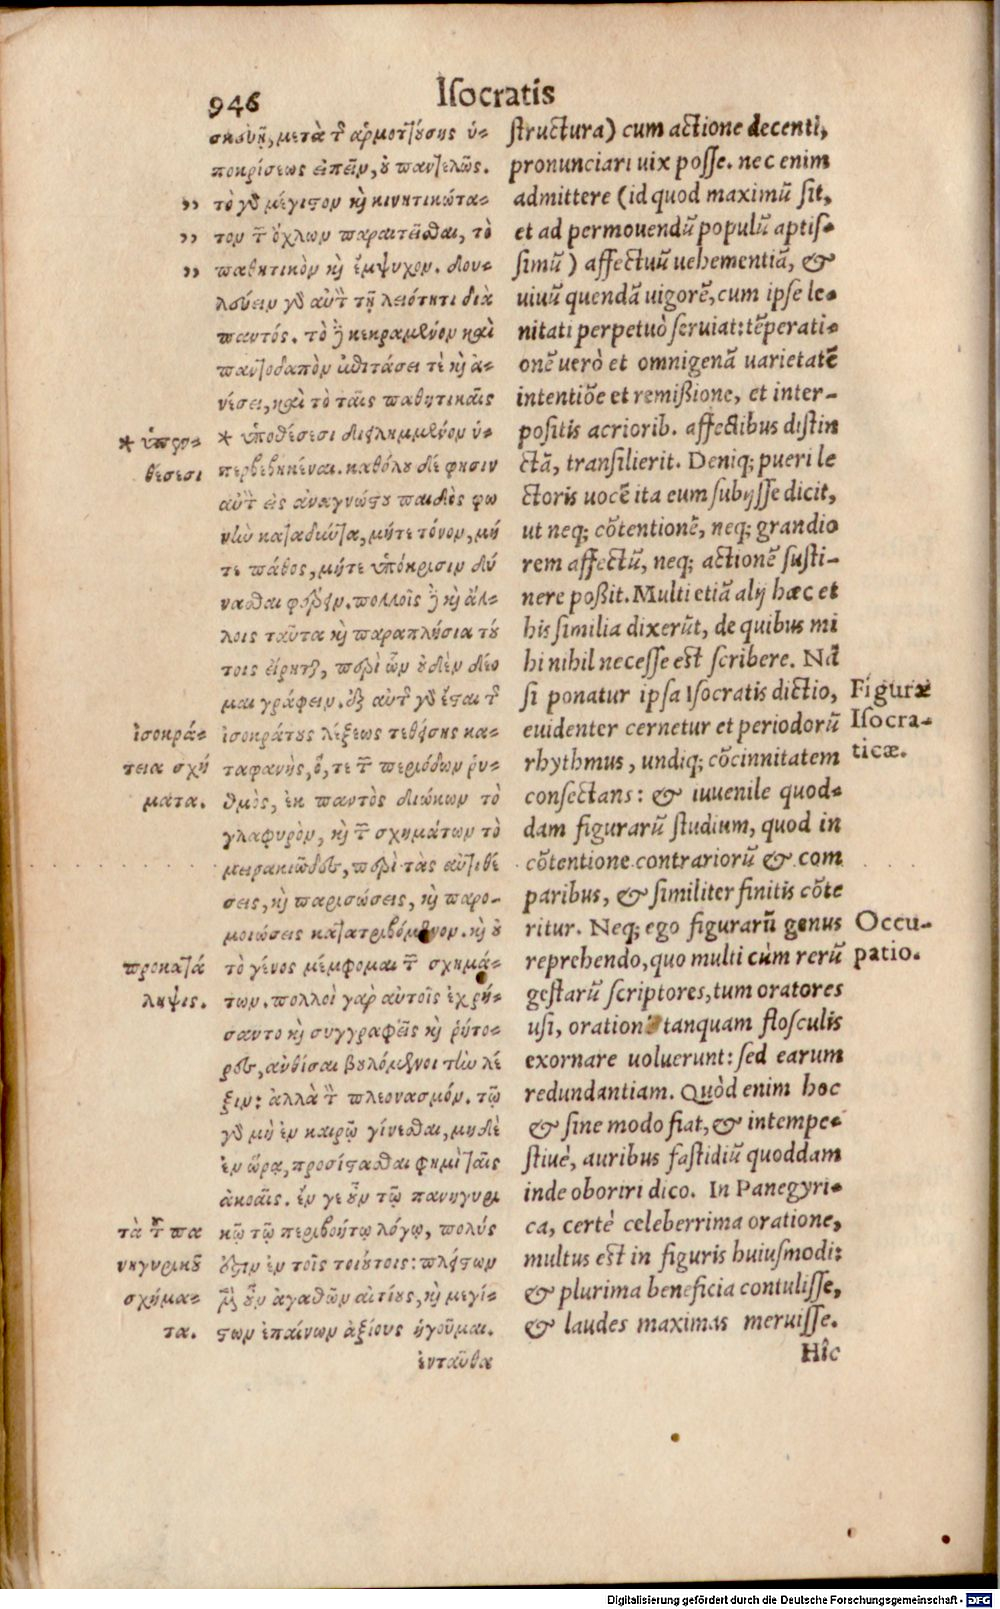 946
Isocratis
σκϵυῇ, μετὰ τ῀ ἁρμοτJούσης ὑ-
ποκρίσεως εἰπεῖν, οὐ παντελῶς.
„ τὸ γὸ μέγιστον κỳ κινητικώτα-
„ τον τ῀ ὄχλων παραιτεῖσθαι, τὸ
„ παθητικὸν κỳ ἔμψυχον. δου-
λεύειν γὸ αὐτ῀ τῇ λειότητι διὰ
παντός. τὸ ἢ κεκραμένον καὶ
παντοδαπὸν ἐπιτάσει τὲ κỳ ἀ-
νέσει, καὶ τὸ ταῖς παθητικαῖς
* ὑποθέσεσι διειλημμένον ὑ-
* ὑπερ-
θέσεσι
περβεβηκέναι. καθόλου δέ φησιν
αὐτ῀ εἰς ἀναγνώστου παιδὸς φω
νὴν καταδῦντα, μήτε τόνον, μή
τε πάθος, μήτε ὑπόκρισιν δύ
νασθαι φέρειν. πολλοῖς ἢ κỳ ἄλ-
λοις ταῦτα κỳ παραπλήσια τού
τοις εἴρηται, περὶ ὧν οὐδὲν δέο
μαι γράφειν. ἐξ αὐτ῀ γὸ ἔσται τ῀
ἰσοκράτους λέξεως τεθείσης κα-
ἰσοκρά-
τεια σχή
ματα.
ταφανής, ὅ, τε τ῀ περιόδων ῥυ-
θμὸς, ἐκ παντὸς διώκων τὸ
γλαφυρὸν, κỳ τ῀ σχημάτων τὸ
μειρακιῶδες, περὶ τὰς ἀντιθέ
σεις, κỳ παρισώσεις, κỳ παρο-
μοιώσεις κατατριβόμενον. κỳ οὐ
τὸ γένος μέμφομαι τ῀ σχημά-
προκατά
ληψις.
των. πολλοὶ γὰρ αὐτοῖς ἐχρή-
σαντο κỳ συγγραφεῖς κỳ ῥήτο-
ρες, ἀνθίσαι βουλόμενοι τὴν λέ
ξιν: ἀλλὰ τ῀ πλεονασμόν. τῷ
γὸ μὴ ἐν καιρῷ γίνεσθαι, μηδὲ
ἐν ὥρᾳ, προσίστασθαι φημὶ ταῖς
ἀκοαῖς. ἐν γε οὖν τῷ πανηγυρι
κῷ τῷ περιβοήτῳ λόγῳ, πολύς
τὰ τ῀ πα
νηγυρικοῦ
σχήμα-
τα.
ἐστιν ἐν τοῖς τοιούτοις: πλείστων
μὲν οὖν ἀγαθῶν αἰτίους, κỳ μεγί-
στων ἐπαίνων ἀξίους ἡγοῦμαι.
ἐνταῦθα
structura) cum actione decenti,
pronunciari uix posse. nec enim
admittere (id quod maximū sit,
et ad permouendū populū aptis-
simū) affectuū uehementiā, &
uiuū quendā uigorē, cum ipse le-
nitati perpetuò seruiat: tēperati-
onē uerò et omnigenā uarietatē
intentiōe et remißione, et inter-
positis acriorib. affectibus distin
ctā, transilierit. Deniq; pueri le
ctoris uocē ita eum subijsse dicit,
ut neq; cōtentionē, neq; grandio
rem affectū, neq; actionē susti-
nere poßit. Multi etiā alij hæc et
his similia dixerūt, de quibus mi
hi nihil necesse est scribere. Nā
si ponatur ipsa Isocratis dictio,
Figuræ
Isocra-
ticæ.
euidenter cernetur et periodorū
rhythmus, undiq; cōcinnitatem
consectans: & iuuenile quod-
dam figurarū studium, quod in
cōtentione contrariorū & com
paribus, & similiter finitis cōte
ritur. Neq; ego figurarū genus
Occu-
patio.
reprehendo, quo multi cùm rerū
gestarū scriptores, tum oratores
usi, orationē tanquam flosculis
exornare uoluerunt: sed earum
redundantiam. Quòd enim hoc
& sine modo fiat, & intempe-
stiuè, auribus fastidiū quoddam
inde oboriri dico. In Panegyri-
ca, certè celeberrima oratione,
multus est in figuris huiusmodi:
& plurima beneficia contulisse,
& laudes maximas meruisse.
Hîc
Digitalisierung gefördert durch die Deutsche Forschungsgemeinschaft - DFG